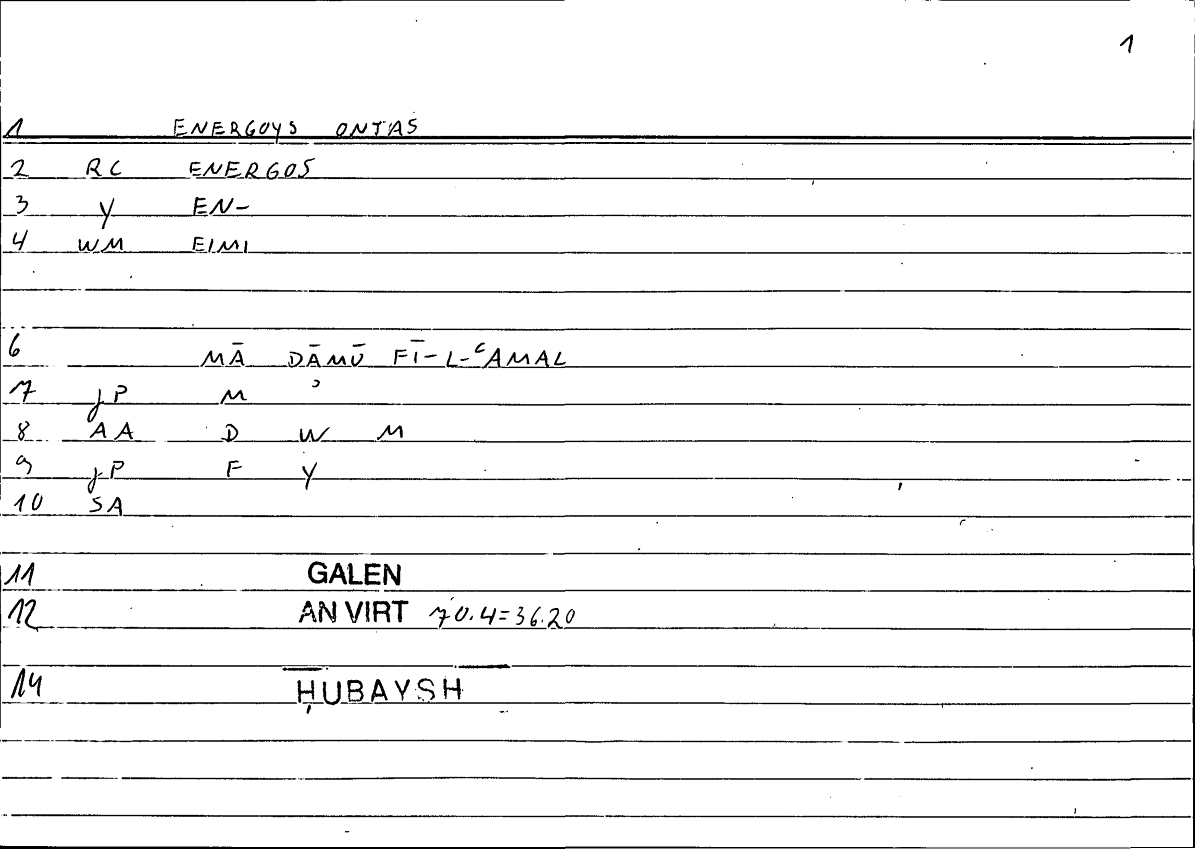 1
1 ENERGOYS ONTAS
2 RC ENERGOS
3 Y EN-
4 WM EIMI
6 MĀ DĀMŪ FĪ-L-ʿAMAL
7 JP M ʾ
8 AA D W M
9 JP F Y
10 SA
11 GALEN
12 AN VIRT 70.4=36.20
14 ḤUBAYSH